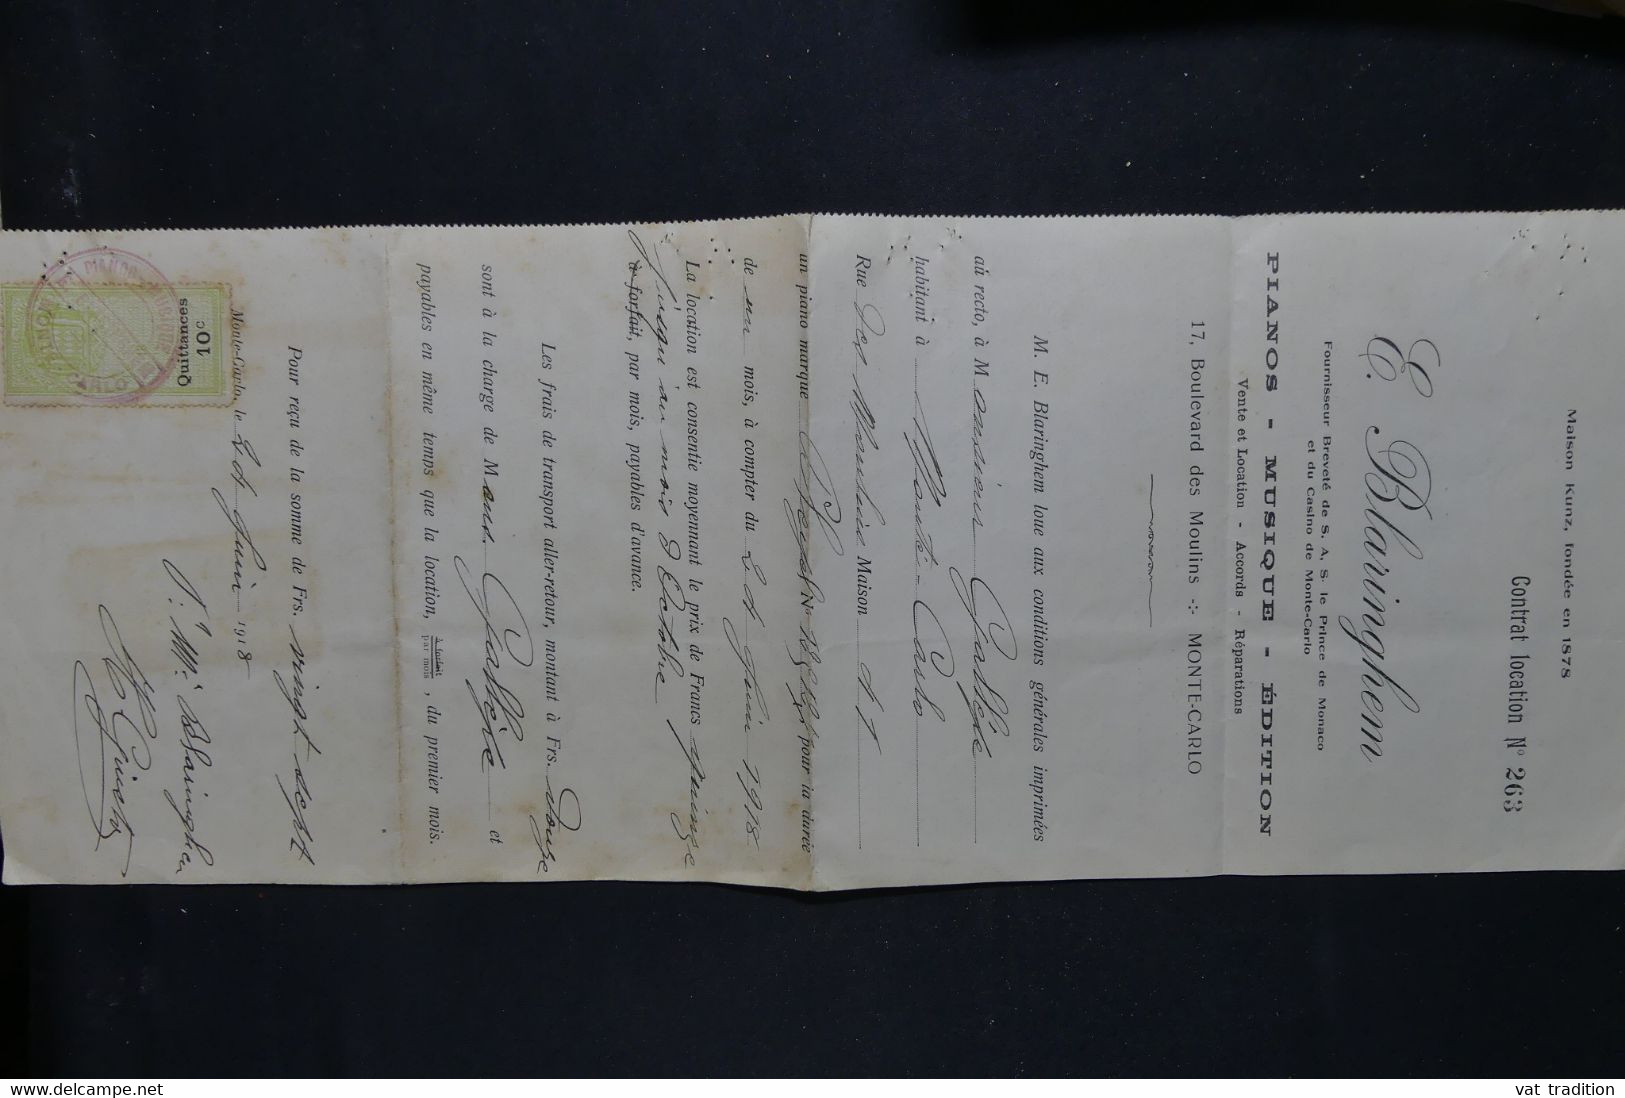 Maison Kunz, fondée en 1875
Contrat location N° 263
E. Blaringhem
Fournisseur Breveté de S. A. S. le Prince de Monaco
et du Casino de Monte-Carlo
PIANOS - MUSIQUE - ÉDITION
Vente et Location - Accords - Réparations
17, Boulevard des Moulins -:- MONTE-CARLO
M. E. Blaringhem loue aux conditions générales imprimées
au recto, à Monsieur
habitant à Monte-Carlo
Rue des Maison
un piano marque N° pour la durée
de un mois, à compter du Juin 1918
La location est consentie moyennant le prix de Francs quinze
jusqu'au mois d'Octobre
à forfait, par mois, payables d'avance.
Les frais de transport aller-retour, montant à Frs. douze
sont à la charge de M et
payables en même temps que la location, à forfait par mois, du premier mois.
Pour reçu de la somme de Frs. vingt sept
Monte-Carlo, le Juin 1918
Quittances
10c
Blaringhem
delcampe.net
vat tradition